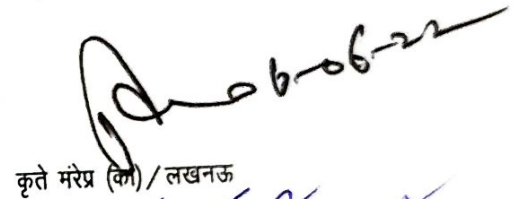 06-06-22
कृते मंरेप्र (का) / लखनऊ